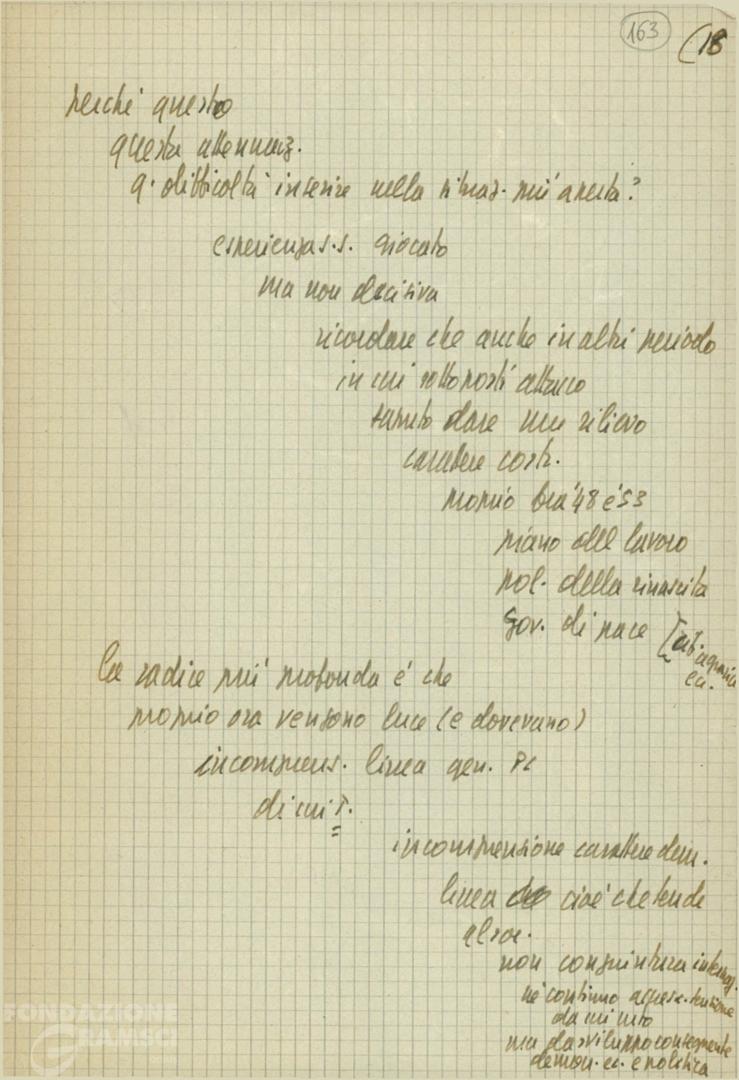 163 (18
perché questo
questa attenuaz.
q. difficoltà inserire nella situaz. più aperta?
esperienza s.s. giocato
ma non decisiva
ricordare che anche in altri periodo
in cui sottoposti attacco
saputo dare un rilievo
carattere costr.
proprio tra '48 e '53
piano del lavoro
pol. della rinascita
gov. di pace [rif. agraria
ec.
la radice più profonda é che
proprio ora vengono luce (e dovevano)
incomprens. linea gen. PC
di cui T.
incomprensione carattere dem.
linea cioé che tende
al soc.
non congiuntura internaz.
né continuo tensione
da un lato
ma da sviluppo conseguente
democr. ec. e politica
FONDAZIONE
GRAMSCI